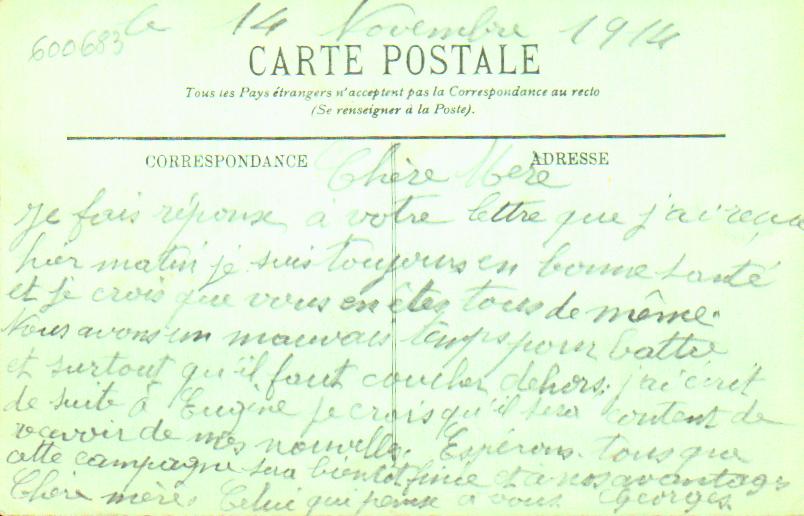 600683 le 14 Novembre 1914
CARTE POSTALE
Tous les Pays étrangers n'acceptent pas la Correspondance au recto
(Se renseigner à la Poste).
CORRESPONDANCE
ADRESSE
Chère Mère
Je fais réponse à votre lettre que j'ai reçue
hier matin je suis toujours en bonne santé
et je crois que vous en êtes tous de même.
Nous avons un mauvais temps pour battre
et surtout qu'il faut coucher dehors. j'ai écrit
de suite à Eugène je crois qu'il sera content de
recevoir de mes nouvelles. Espérons tous que
cette campagne sera bientôt finie et à nos avantages
Chère mère. Celui qui pense à vous Georges